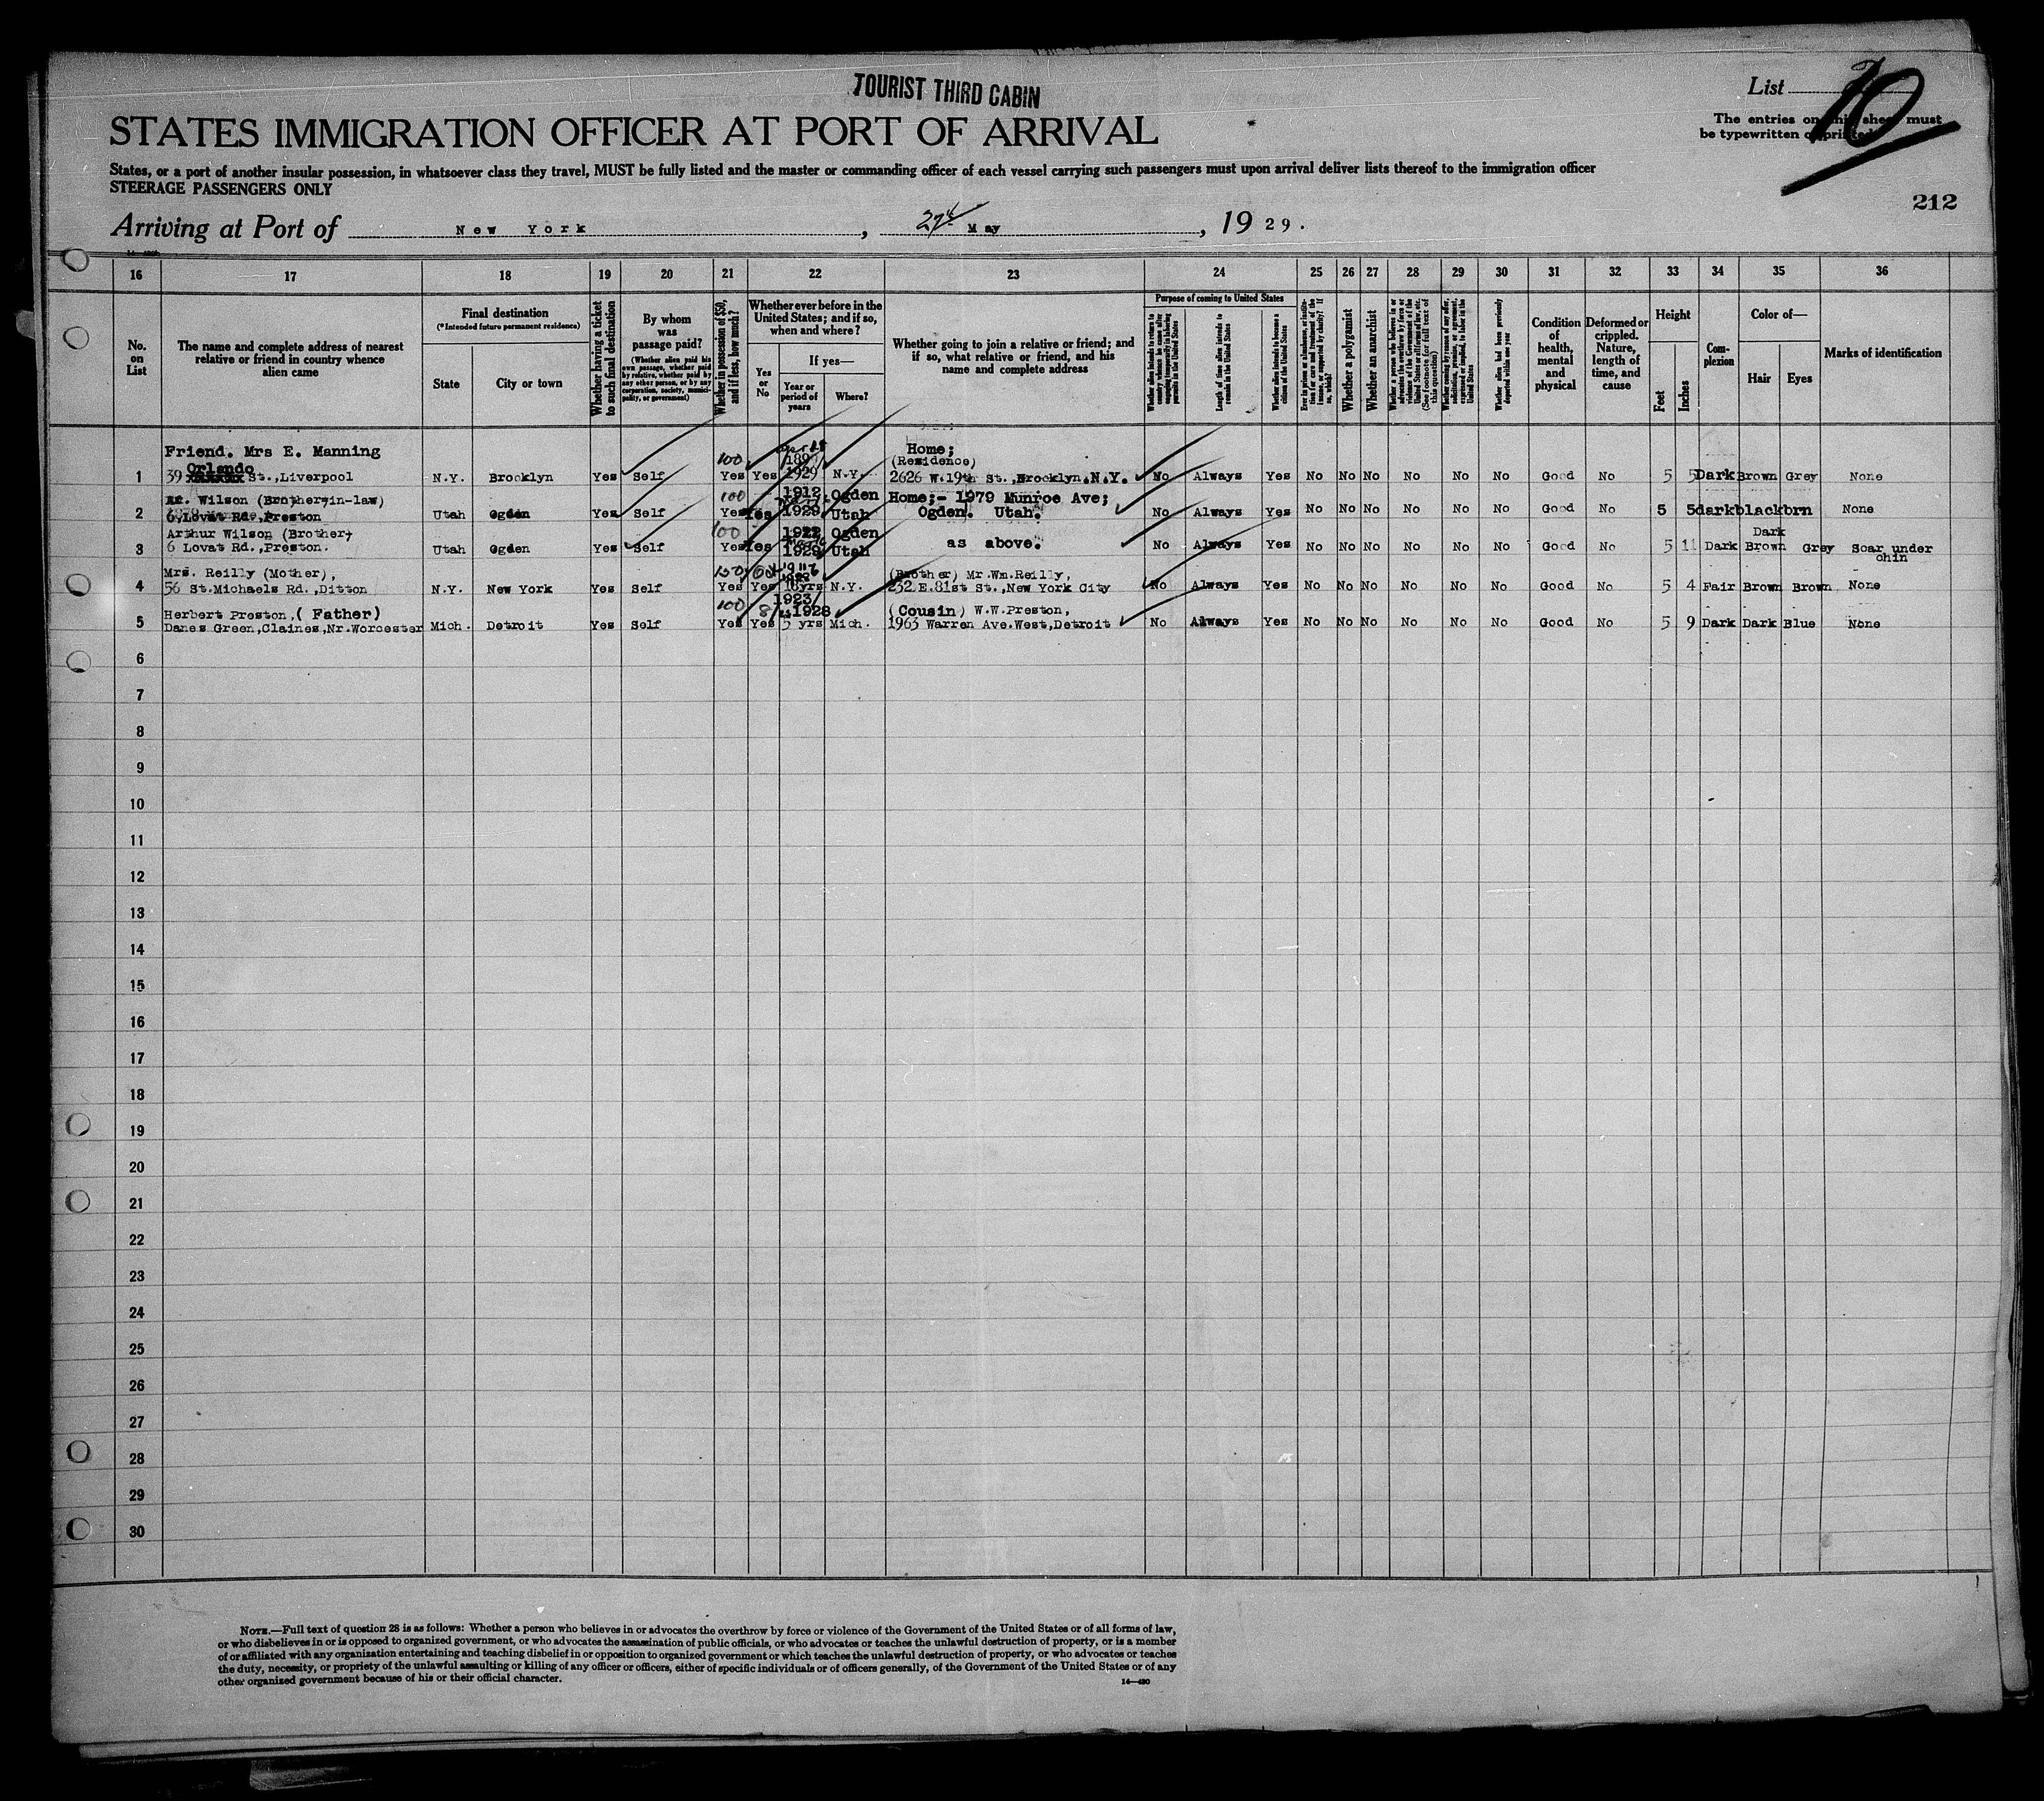 TOURIST THIRD CABIN
List
10
STATES IMMIGRATION OFFICER AT PORT OF ARRIVAL
The entries on this sheet must
be typewritten or printed
States, or a port of another insular possession, in whatsoever class they travel, MUST be fully listed and the master or commanding officer of each vessel carrying such passengers must upon arrival deliver lists thereof to the immigration officer
STEERAGE PASSENGERS ONLY
212
Arriving at Port of New York, 27th May, 1929.
16 17 18 19 20 21 22 23 24 25 26 27 28 29 30 31 32 33 34 35 36
No. on List
The name and complete address of nearest relative or friend in country whence alien came
Final destination
(*Intended future permanent residence)
State
City or town
Whether having a ticket to such final destination
By whom was passage paid?
(Whether alien paid his own passage, whether paid by relative, whether paid by any other person, or by any corporation, society, municipality, or government)
Whether in possession of $50, and if less, how much?
Whether ever before in the United States; and if so, when and where?
Yes or No
If yes—
Year or period of years
Where?
Whether going to join a relative or friend; and if so, what relative or friend, and his name and complete address
Purpose of coming to United States
Whether alien intends to return to country whence he came after engaging temporarily in laboring pursuits in the United States
Length of time alien intends to remain in the United States
Whether alien intends to become a citizen of the United States
Whether a polygamist
Whether an anarchist
Whether alien had been previously deported within one year
Condition of health, mental and physical
Deformed or crippled. Nature, length of time, and cause
Height
Feet
Inches
Complexion
Color of—
Hair
Eyes
Marks of identification
Friend. Mrs E. Manning 100 Home;
Orlando 1897 (Residence)
1 39 St.,Liverpool N.Y. Brooklyn Yes Self Yes Yes 1929 N.Y. 2626 W.19th St.,Brooklyn.N.Y. No Always Yes No No No No No No Good No 5 5 Dark Brown Grey None
Mr. Wilson (Brother-in-law) 100 1912 Ogden Home;- 1979 Munroe Ave;
2 6,Lovat Rd.,Preston Utah Ogden Yes Self Yes Yes 1929 Utah Ogden. Utah. No Always Yes No No No No No No Good No 5 5 dark black brn None
Arthur Wilson (Brother) 100 1922 Ogden Dark
3 6 Lovat Rd.,Preston. Utah Ogden Yes Self Yes Yes 1929 Utah as above. No Always Yes No No No No No No Good No 5 11 Dark Brown Grey Scar under
chin
Mrs. Reilly (Mother), 150 (Brother) Mr.Wm.Reilly,
4 56 St.Michaels Rd.,Ditton N.Y. New York Yes Self Yes Yes yrs N.Y. 232 E.81st St.,New York City No Always Yes No No No No No No Good No 5 4 Fair Brown Brown None
Herbert Preston,( Father) 100 1923/ 1928 (Cousin) W.W.Preston,
5 Danes Green,Claines,Nr.Worcester Mich. Detroit Yes Self Yes Yes 5 yrs Mich. 1963 Warren Ave.West,Detroit No Always Yes No No No No No No Good No 5 9 Dark Dark Blue None
6
7
8
9
10
11
12
13
14
15
16
17
18
19
20
21
22
23
24
25
26
27
28
29
30
NOTE.—Full text of question 28 is as follows: Whether a person who believes in or advocates the overthrow by force or violence of the Government of the United States or of all forms of law,
or who disbelieves in or is opposed to organized government, or who advocates the assassination of public officials, or who advocates or teaches the unlawful destruction of property, or is a member
of or affiliated with any organization entertaining and teaching disbelief in or opposition to organized government or which teaches the unlawful destruction of property, or who advocates or teaches
the duty, necessity, or propriety of the unlawful assaulting or killing of any officer or officers, either of specific individuals or of officers generally, of the Government of the United States or of any
other organized government because of his or their official character.
14—430